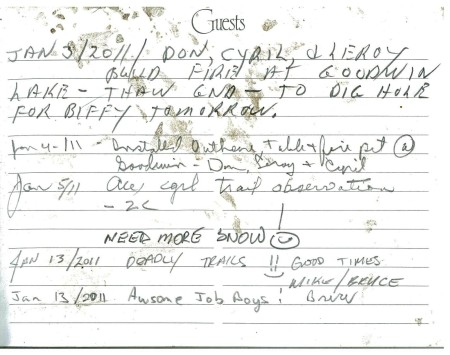 Guests
JAN 3/2011/ DON, CYRIL, & LEROY
BUILD FIRE AT GOODWIN
LAKE - THAW GND - TO DIG HOLE
FOR BIFFY TOMORROW.
Jan 4-/11 - Installed Outhouse, Table & fire pit @
Goodwin - Don, Leroy & Cyril
Jan 5/11 trail observation
NEED MORE SNOW
JAN 13/2011 DEADLY TRAILS !! GOOD TIMES
MIKE/BRUCE
Jan 13/2011 Awsome Job Boys!